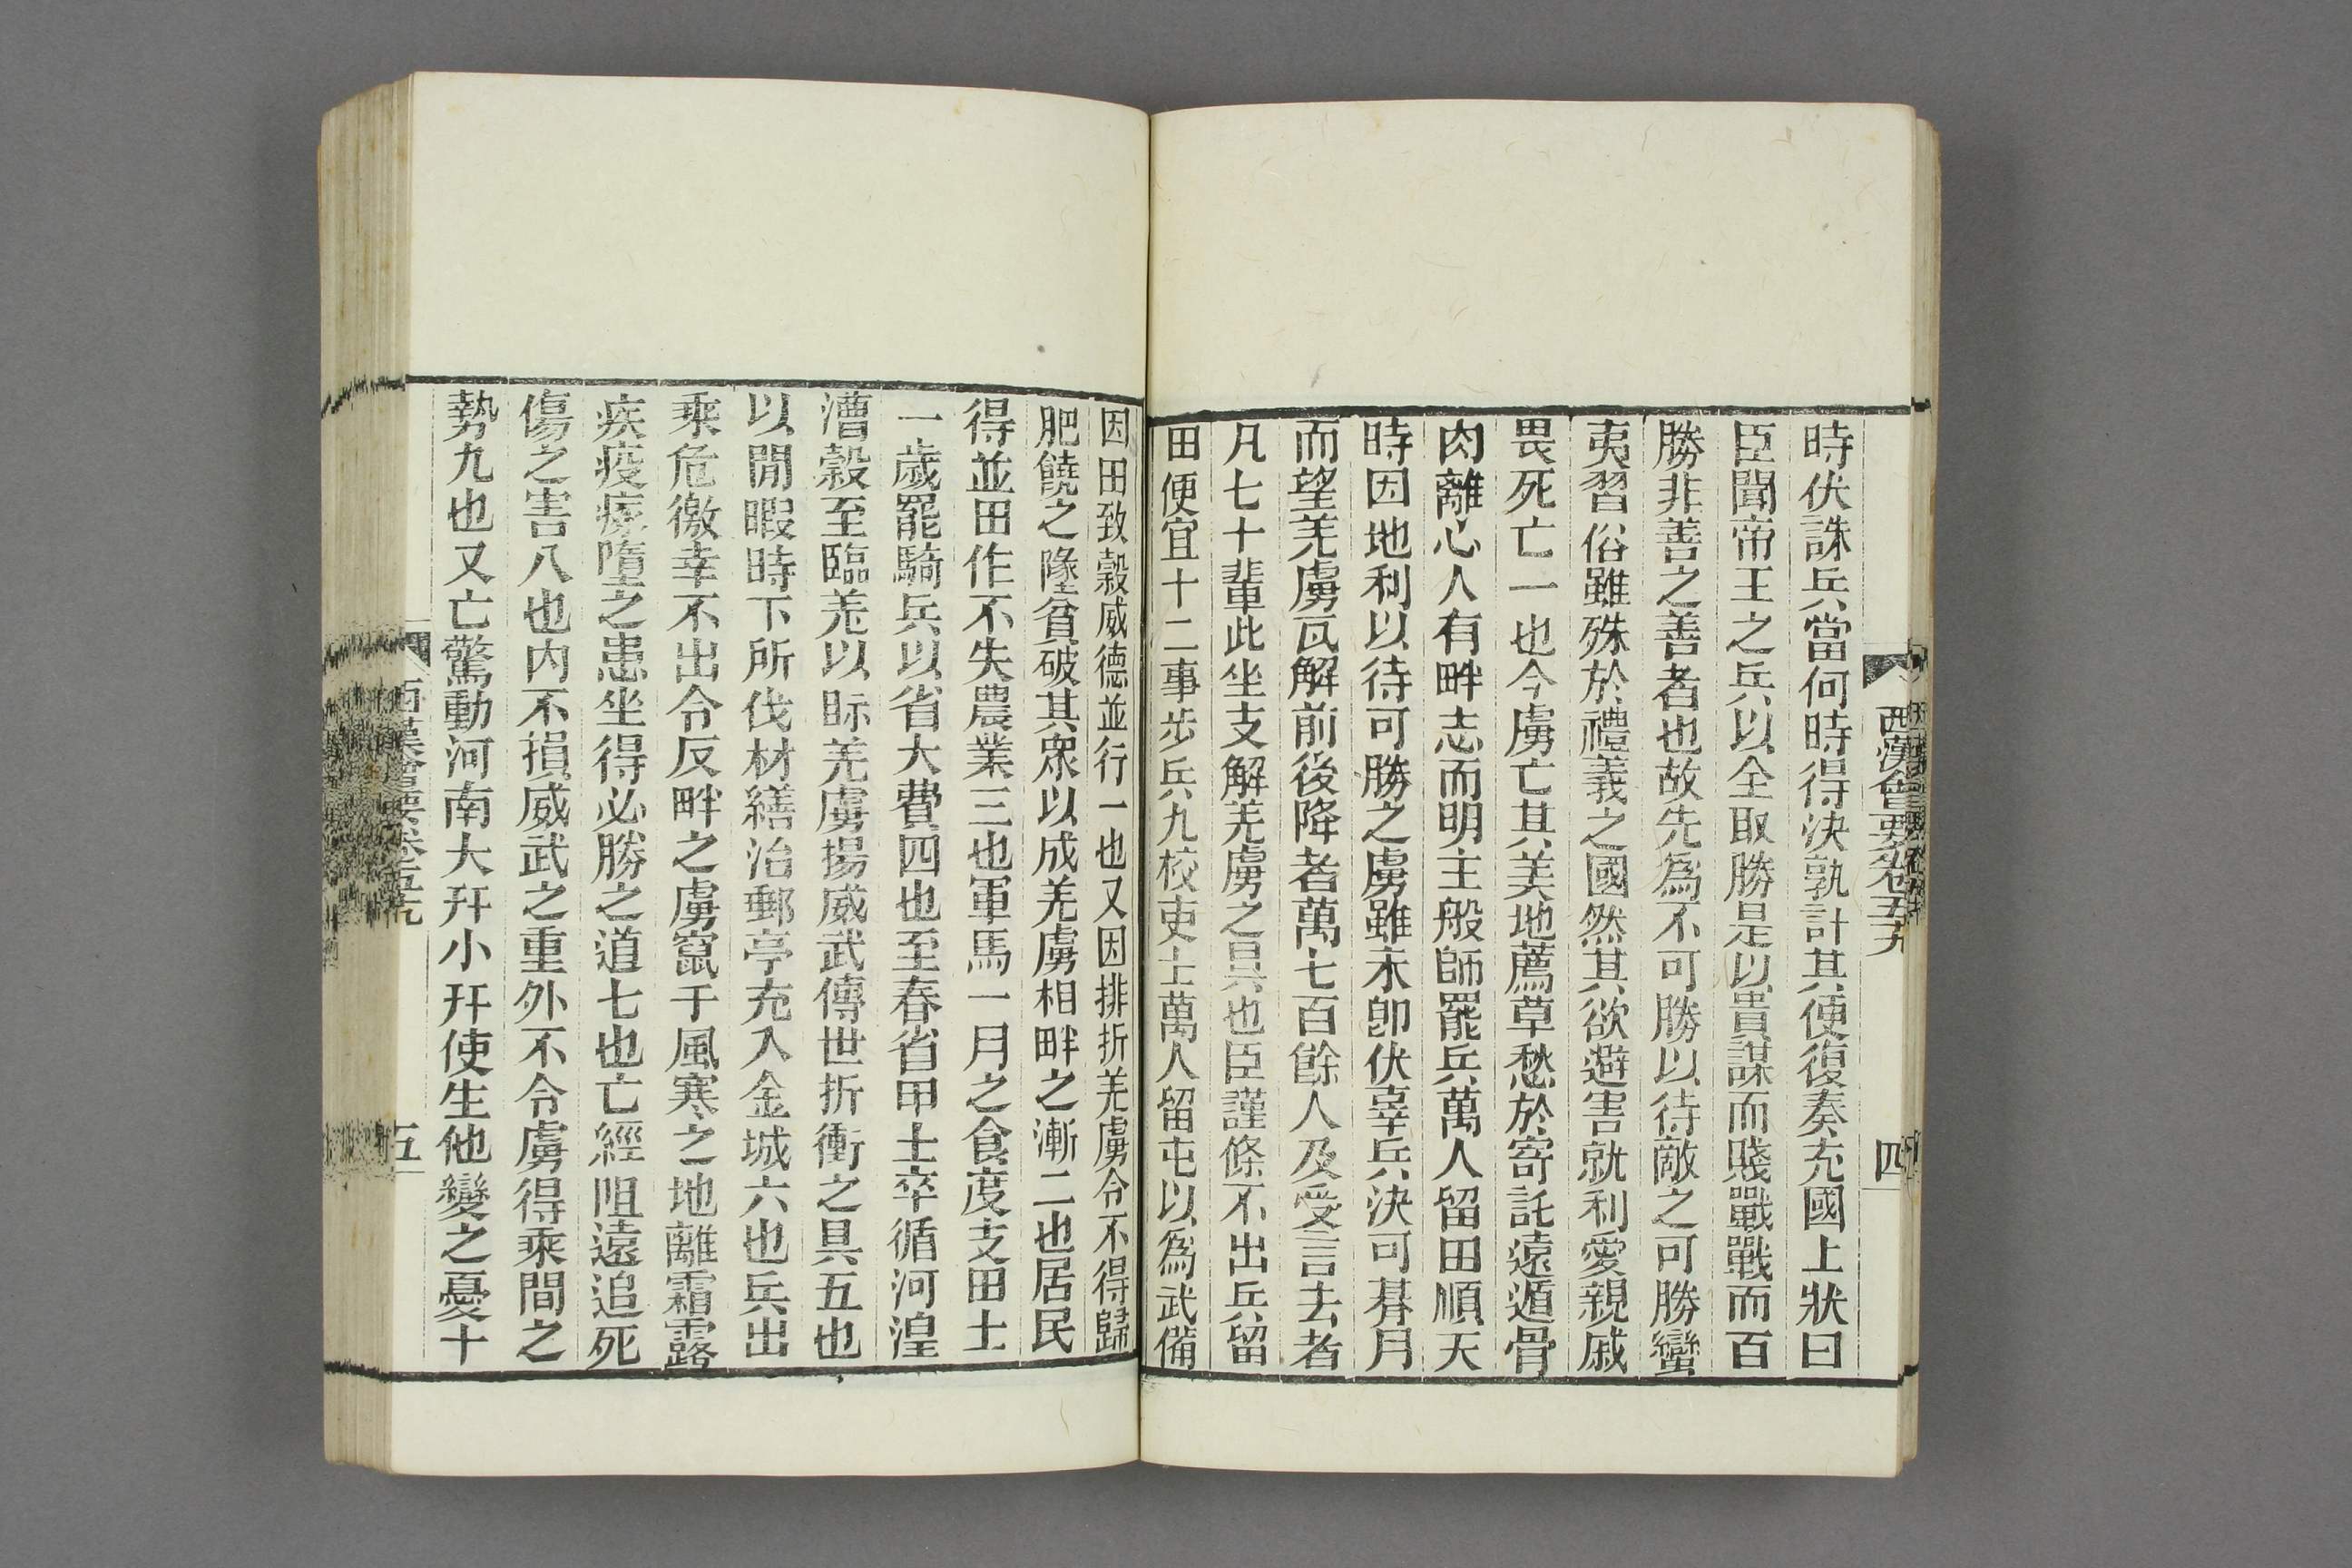 西漢會要卷五十九
四
時伏誅兵當何時得決孰計其便復奏充國上狀曰
臣聞帝王之兵以全取勝是以貴謀而賤戰戰而百
勝非善之善者也故先爲不可勝以待敵之可勝蠻
夷習俗雖殊於禮義之國然其欲避害就利愛親戚
畏死亡一也今虜亡其美地薦草愁於寄託遠遁骨
肉離心人有畔志而明主般師罷兵萬人留田順天
時因地利以待可勝之虜雖未卽伏辜兵決可朞月
而望羌虜瓦解前後降者萬七百餘人及受言去者
凡七十輩此坐支解羌虜之具也臣謹條不出兵留
田便宜十二事步兵九校吏士萬人留屯以爲武備
因田致穀威德並行一也又因排折羌虜令不得歸
肥饒之墬貧破其衆以成羌虜相畔之漸二也居民
得並田作不失農業三也軍馬一月之食度支田士
一歲罷騎兵以省大費四也至春省甲士卒循河湟
漕穀至臨羌以眎羌虜揚威武傳世折衝之具五也
以閒暇時下所伐材繕治郵亭充入金城六也兵出
乘危徼幸不出令反畔之虜竄于風寒之地離霜露
疾疫瘃墮之患坐得必勝之道七也亡經阻遠追死
傷之害八也内不損威武之重外不令虜得乘間之
勢九也又亡驚動河南大幵小幵使生他變之憂十
西漢會要卷五十九
五